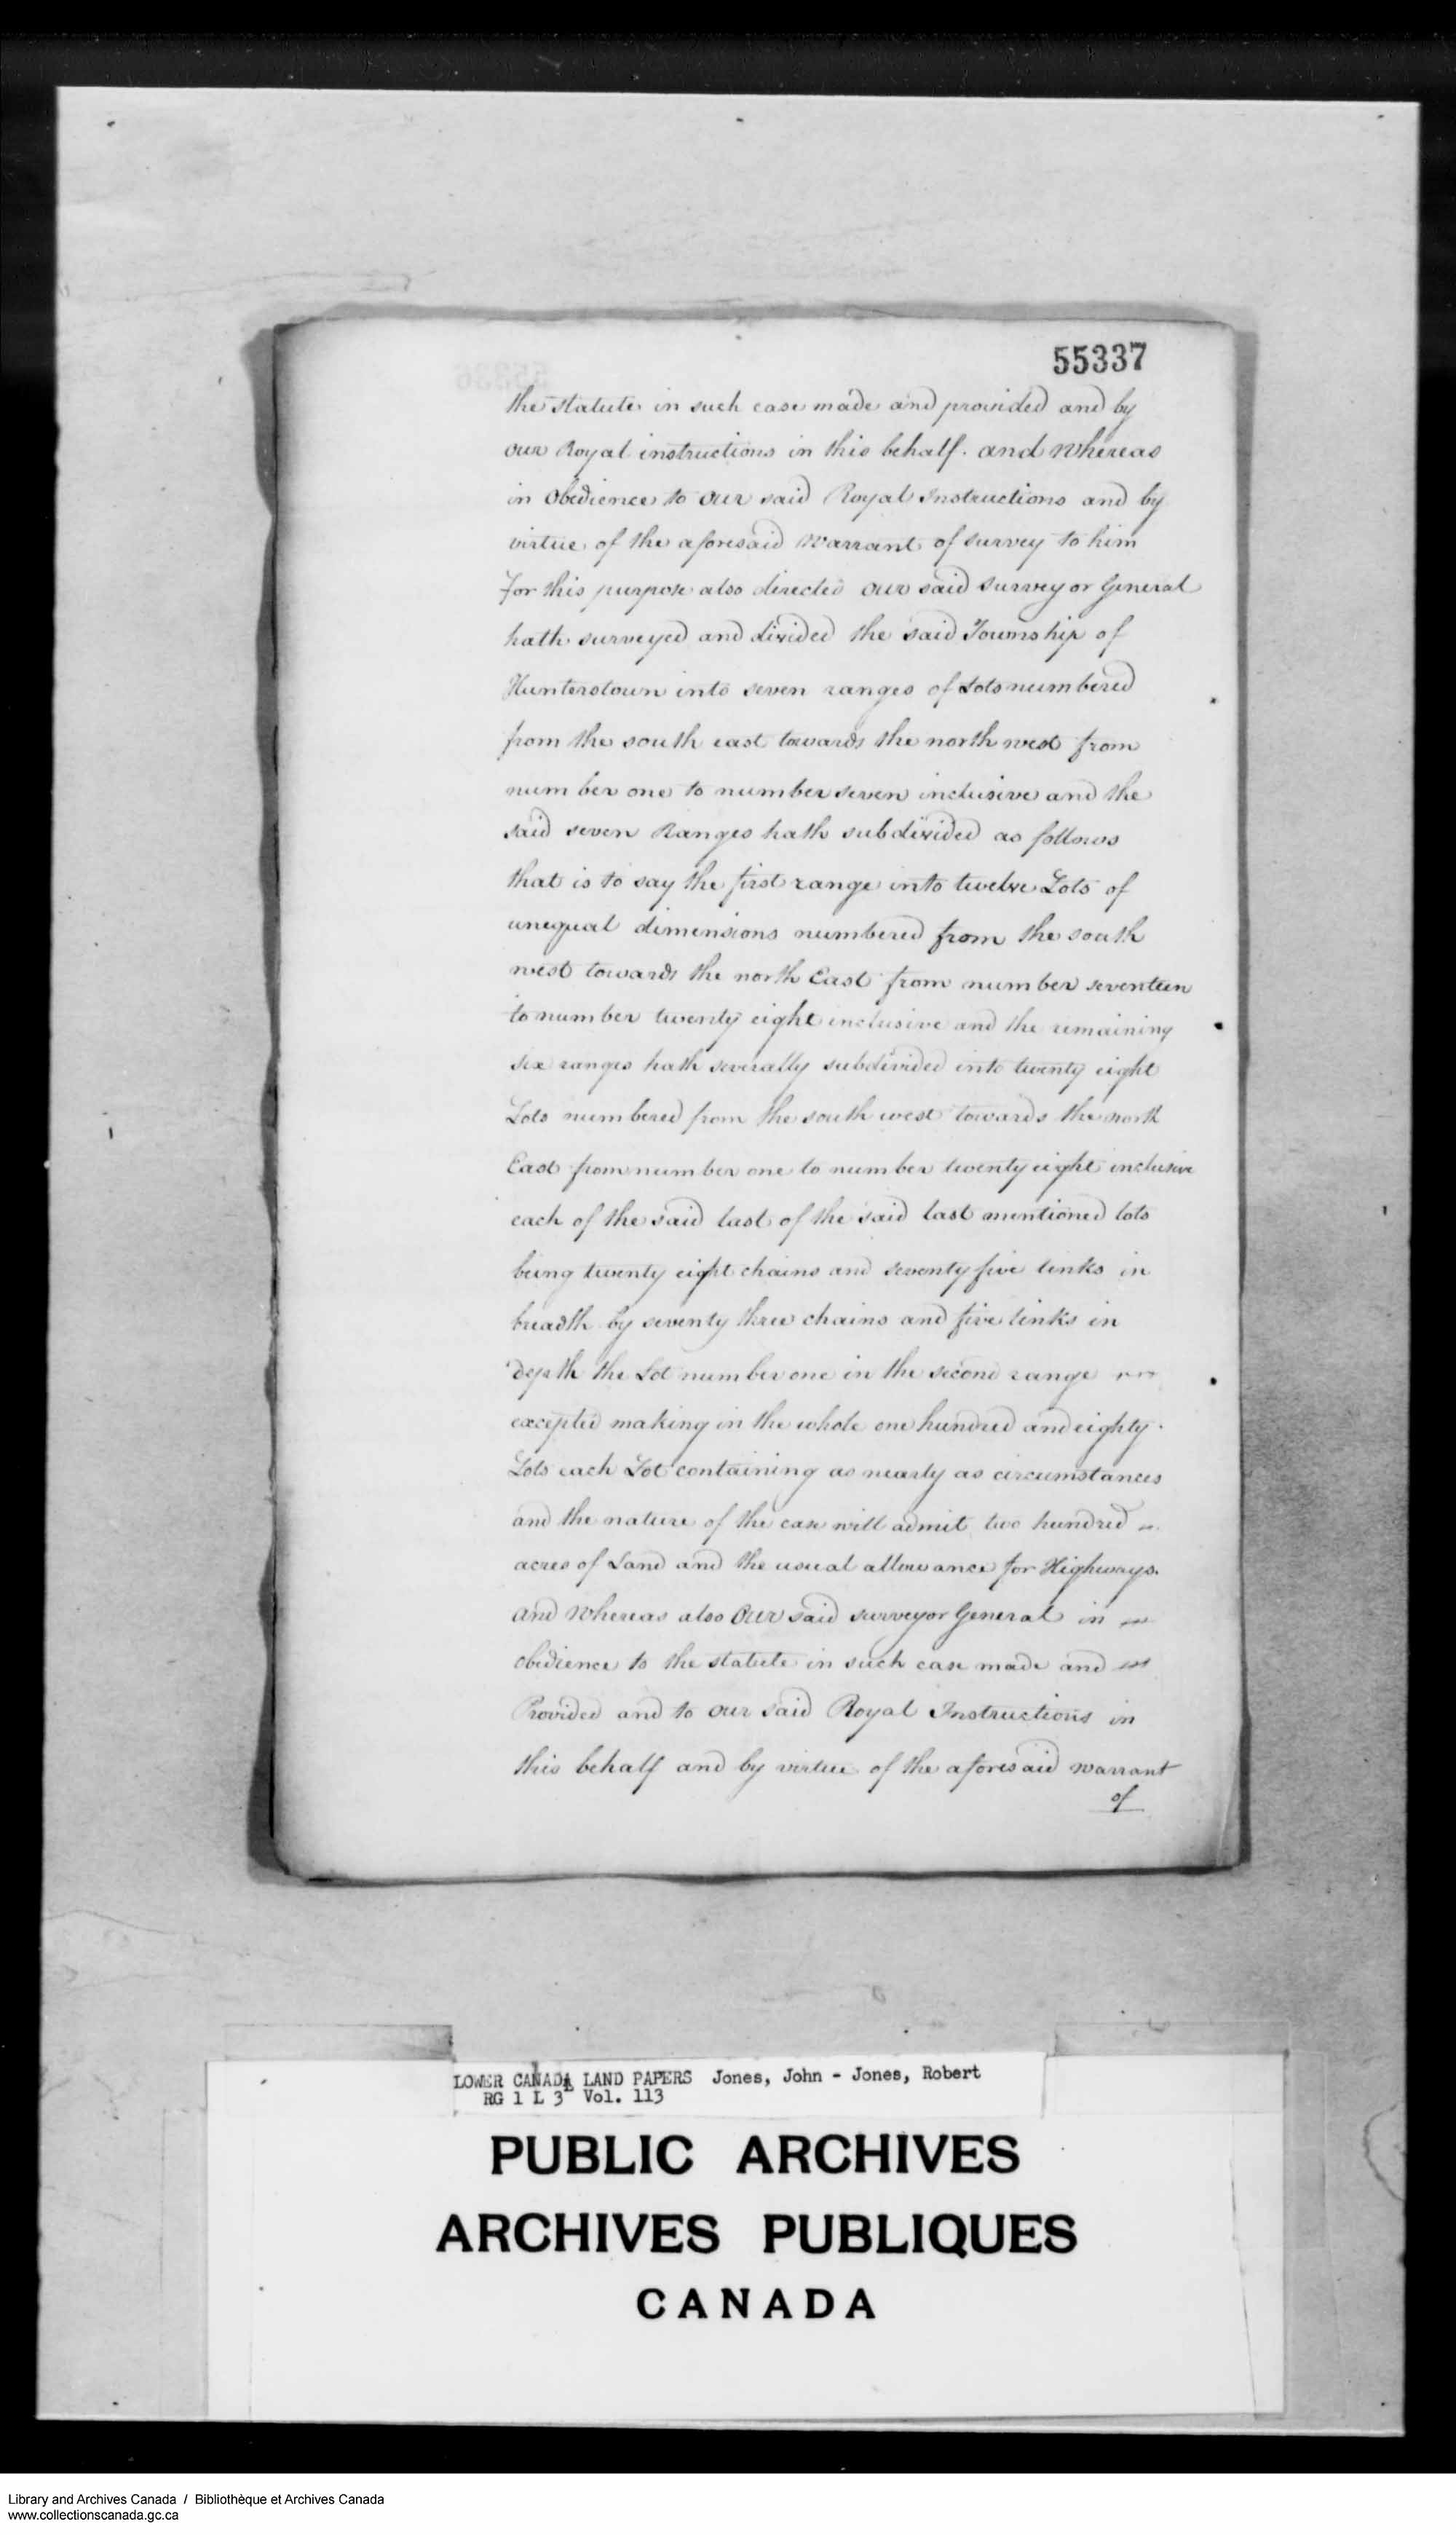 55337
the statute in such case made and provided and by
our Royal instructions in this behalf. and Whereas
in Obedience to our said Royal Instructions and by
virtue of the aforesaid Warrant of survey to him
for this purpose also directed our said surveyor General
hath surveyed and divided the said Township of
Hunterstown into seven ranges of Lots numbered
from the south east towards the north west from
number one to number seven inclusive and the
said seven Ranges hath subdivided as follows
that is to say the first range into twelve Lots of
unequal dimensions numbered from the south
west towards the north East from number seventeen
to number twenty eight inclusive and the remaining
six ranges hath severally subdivided into twenty eight
Lots numbered from the south west towards the north
East from number one to number twenty eight inclusive
each of the said last of the said last mentioned lots
being twenty eight chains and seventy five links in
breadth by seventy three chains and five links in
depth the Lot number one in the second range
excepted making in the whole one hundred and eighty
Lots each Lot containing as nearly as circumstances
and the nature of the case will admit two hundred
acres of Land and the usual allowance for Highways.
and Whereas also Our said surveyor General in
obedience to the statute in such case made and
Provided and to our said Royal Instructions in
this behalf and by virtue of the aforesaid warrant
of
LOWER CANADA LAND PAPERS Jones, John - Jones, Robert
RG 1 L 3L Vol. 113
PUBLIC ARCHIVES
ARCHIVES PUBLIQUES
CANADA
Library and Archives Canada / Bibliothèque et Archives Canada
www.collectionscanada.gc.ca